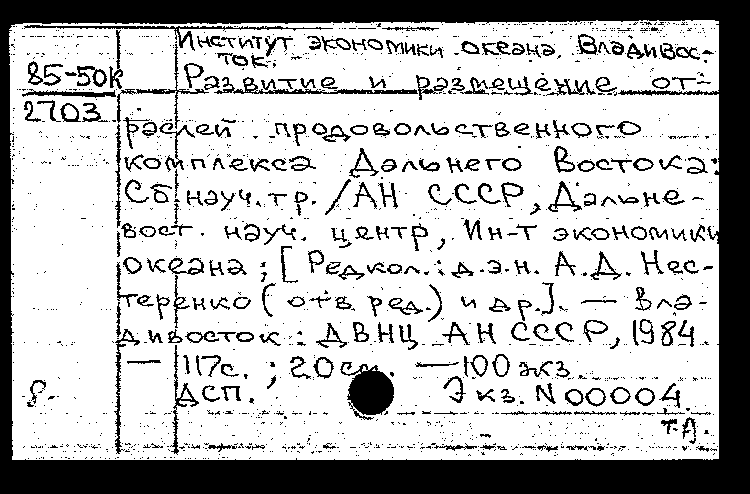 Институт экономики океана. Владивос-
ток.
85-50к Развитие и размещение от-
2703
раслей продовольственного
комплекса Дальнего Востока:
Сб. науч. тр. / АН СССР, Дальне-
вост. науч. центр, Ин-т экономики
океана; [Редкол.: д.э.н. А.Д. Нес-
теренко (отв. ред.) и др.]. — Вла-
дивосток: ДВНЦ АН СССР, 1984.
— 117с.; 20см. — 100 экз.
8. ДСП. Экз. N 00004.
т.А.